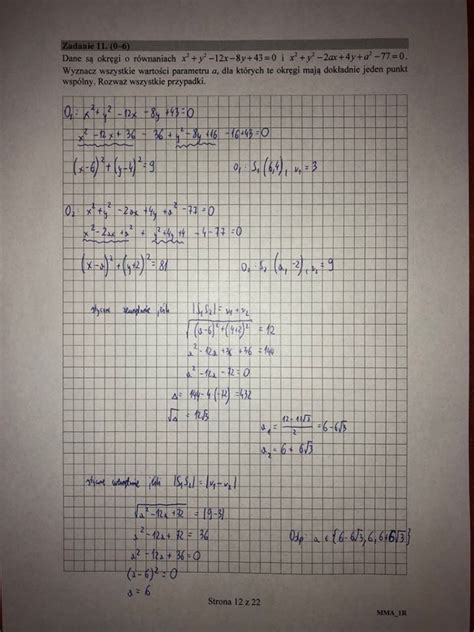 Zadanie 11. (0–6)
Dane są okręgi o równaniach x²+y²−12x−8y+43=0 i x²+y²−2ax+4y+a²−77=0.
Wyznacz wszystkie wartości parametru a, dla których te okręgi mają dokładnie jeden punkt
wspólny. Rozważ wszystkie przypadki.
O₁: x²+y²−12x−8y+43=0
x²−12x+36 −36+y²−8y+16 −16+43=0
(x−6)²+(y−4)²=9 O₁: S₁(6,4), r₁=3
O₂: x²+y²−2ax+4y+a²−77=0
x²−2ax+a² + y²+4y+4 −4−77=0
(x−a)²+(y+2)²=81 O₂: S₂(a,−2), r₂=9
styczne zewnętrznie, |S₁S₂|=r₁+r₂
√(a−6)²+(4+2)² = 12
a²−12a+36+36=144
a²−12a−72=0
Δ=144−4·(−72)=432
√Δ=12√3 a₁= =6−6√3
a₂=6+6√3
styczne wewnętrznie, |S₁S₂|=|r₁−r₂|
√a²−12a+72 =|9−3|
a²−12a+72=36
a²−12a+36=0 Odp a∈{6−6√3,6,6+6√3}
(a−6)²=0
a=6
Strona 12 z 22
MMA_1R